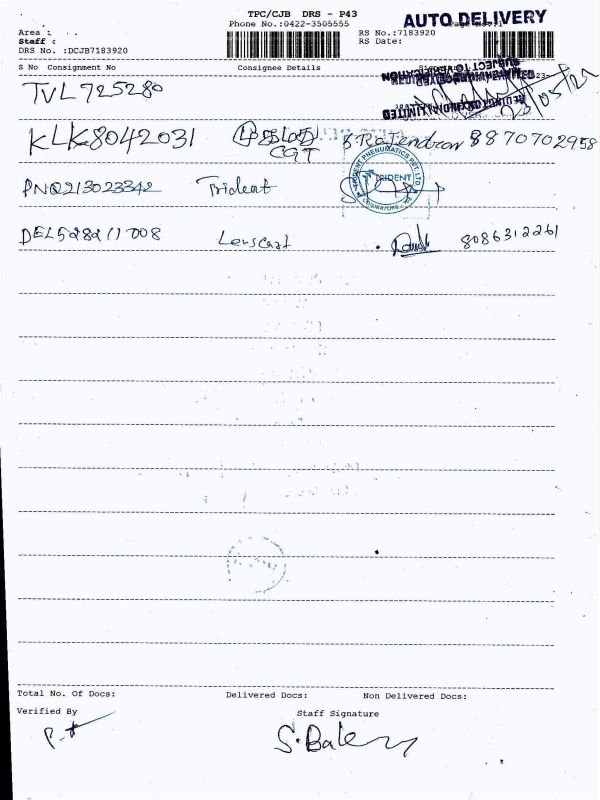 TPC/CJB DRS - P43
AUTO DELIVERY
Phone No.:0422-3505555
Area :
RS No.:7183920
Staff :
RS Date:
DRS No. :DCJB7183920
S No Consignment No Consignee Details
SUBJECT TO
LIMITED
TVL725280
KLK8042031 CGT S Rajendran 8870702958
PNQ213023342 Trident
TRIDENT PNEUMATICS PVT. LTD.
TRIDENT
COIMBATORE
DEL528211008 Lenscart 8086312261
Total No. Of Docs: Delivered Docs: Non Delivered Docs:
Verified By Staff Signature